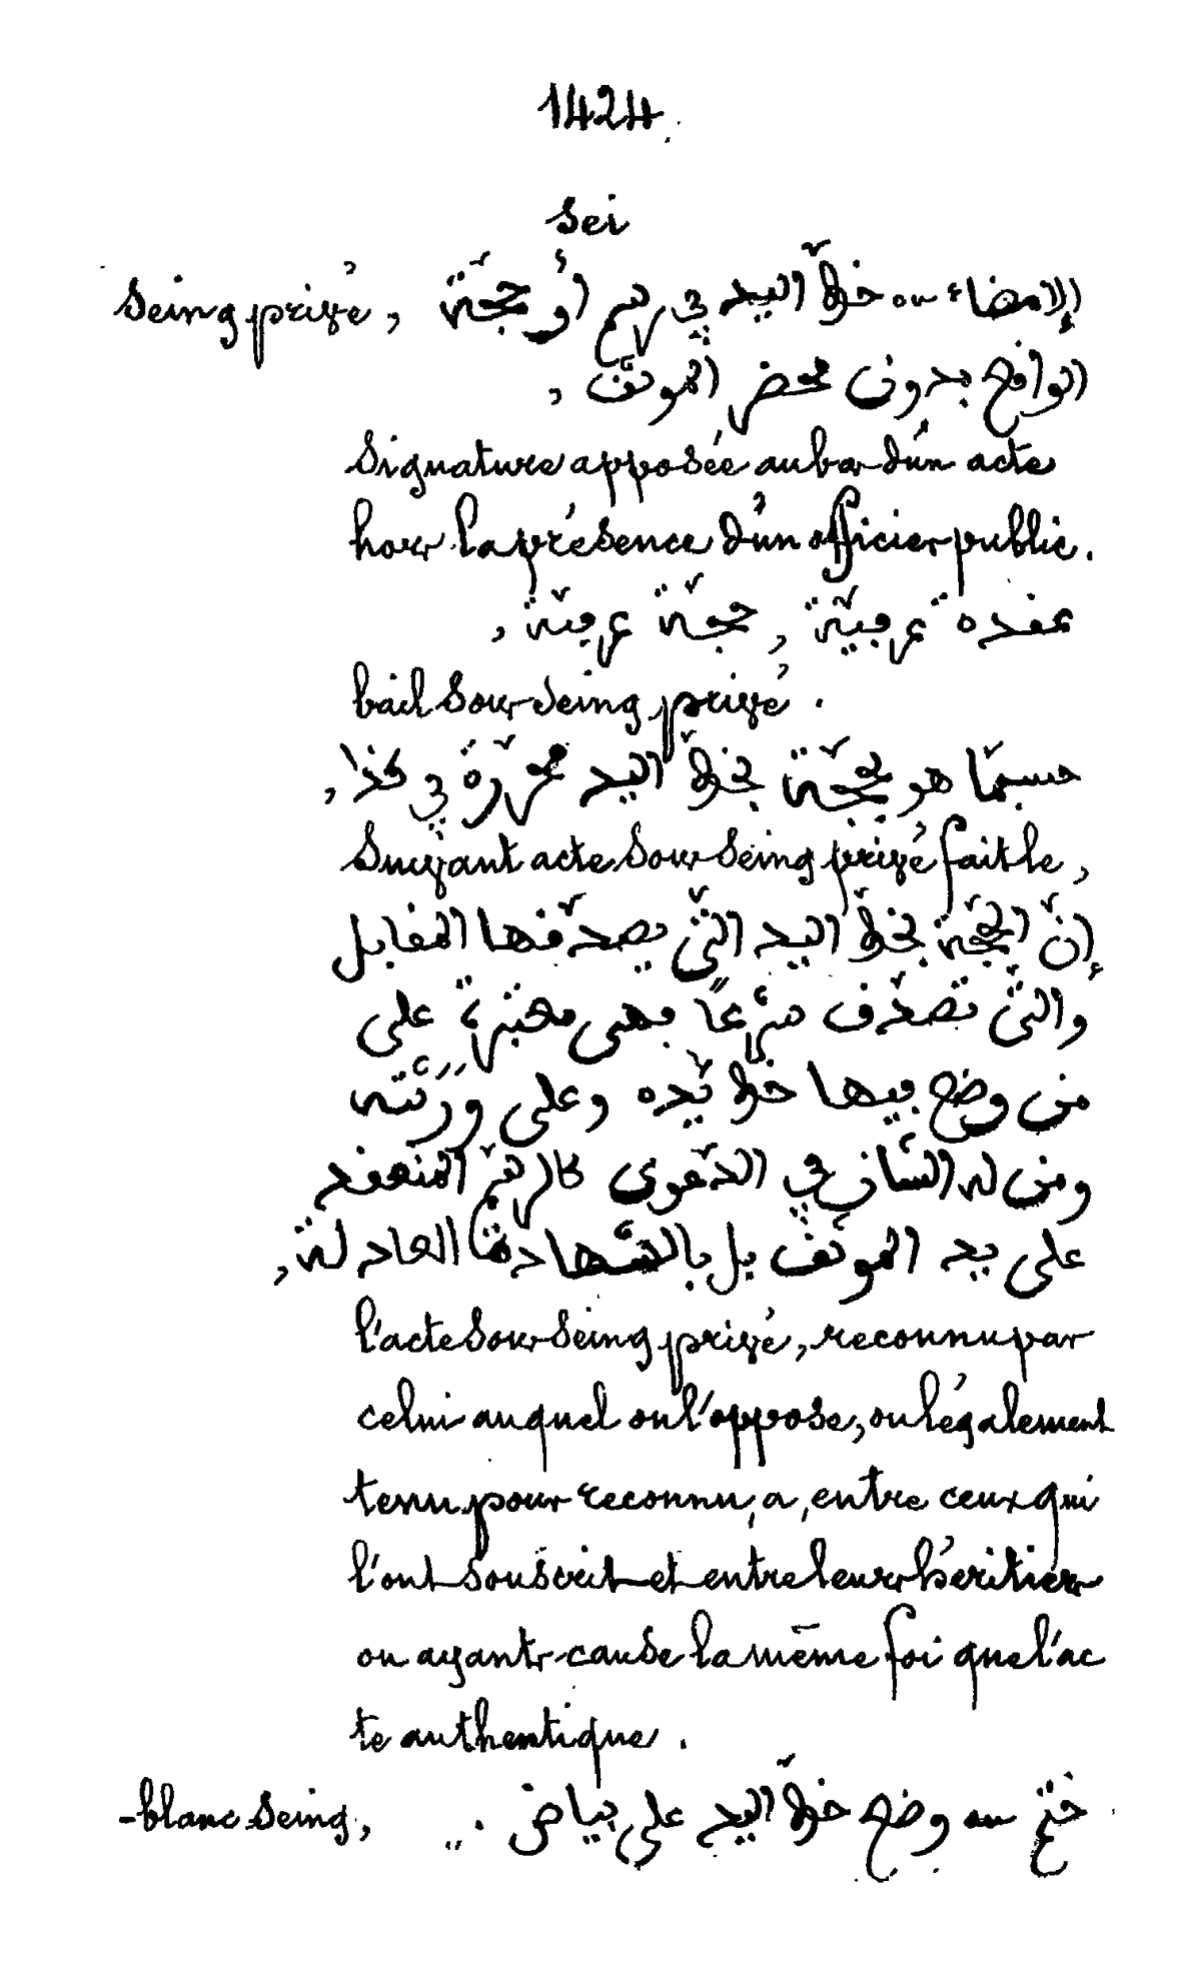 1424.
Sei
Seing privé, الإمضاء ou خطّ اليد في رسم أو حجّة
الواقع بدون محضر الموثّق,
signature apposée au bas d'un acte
hors la présence d'un officier public.
عقدة عرفيّة, حجّة عرفيّة,
bail sous-seing privé.
حسبمّا هو بحجّة بخطّ اليد محرّرة في كذا,
suivant acte sous-seing privé fait le,
إنّ الحجّة بخطّ اليد التّي يصدّقها المقابل
والتّي تصدّق شرعًا فهي معتبرة على
من وضع فيها خطّ يده وعلى وَرَثَته
ومن له الشّأن في الدّعوى كالرسم المنعقد
على يد الموثّق بل بالشّهادة العادلة,
l'acte sous-seing privé, reconnu par
celui auquel on l'oppose, ou légalement
tenu pour reconnu, a, entre ceux qui
l'ont souscrit et entre leurs héritiers
ou ayants-cause la même foi que l'ac
te authentique.
-blanc seing, ختم ou وضع خطّ اليد على بياض.